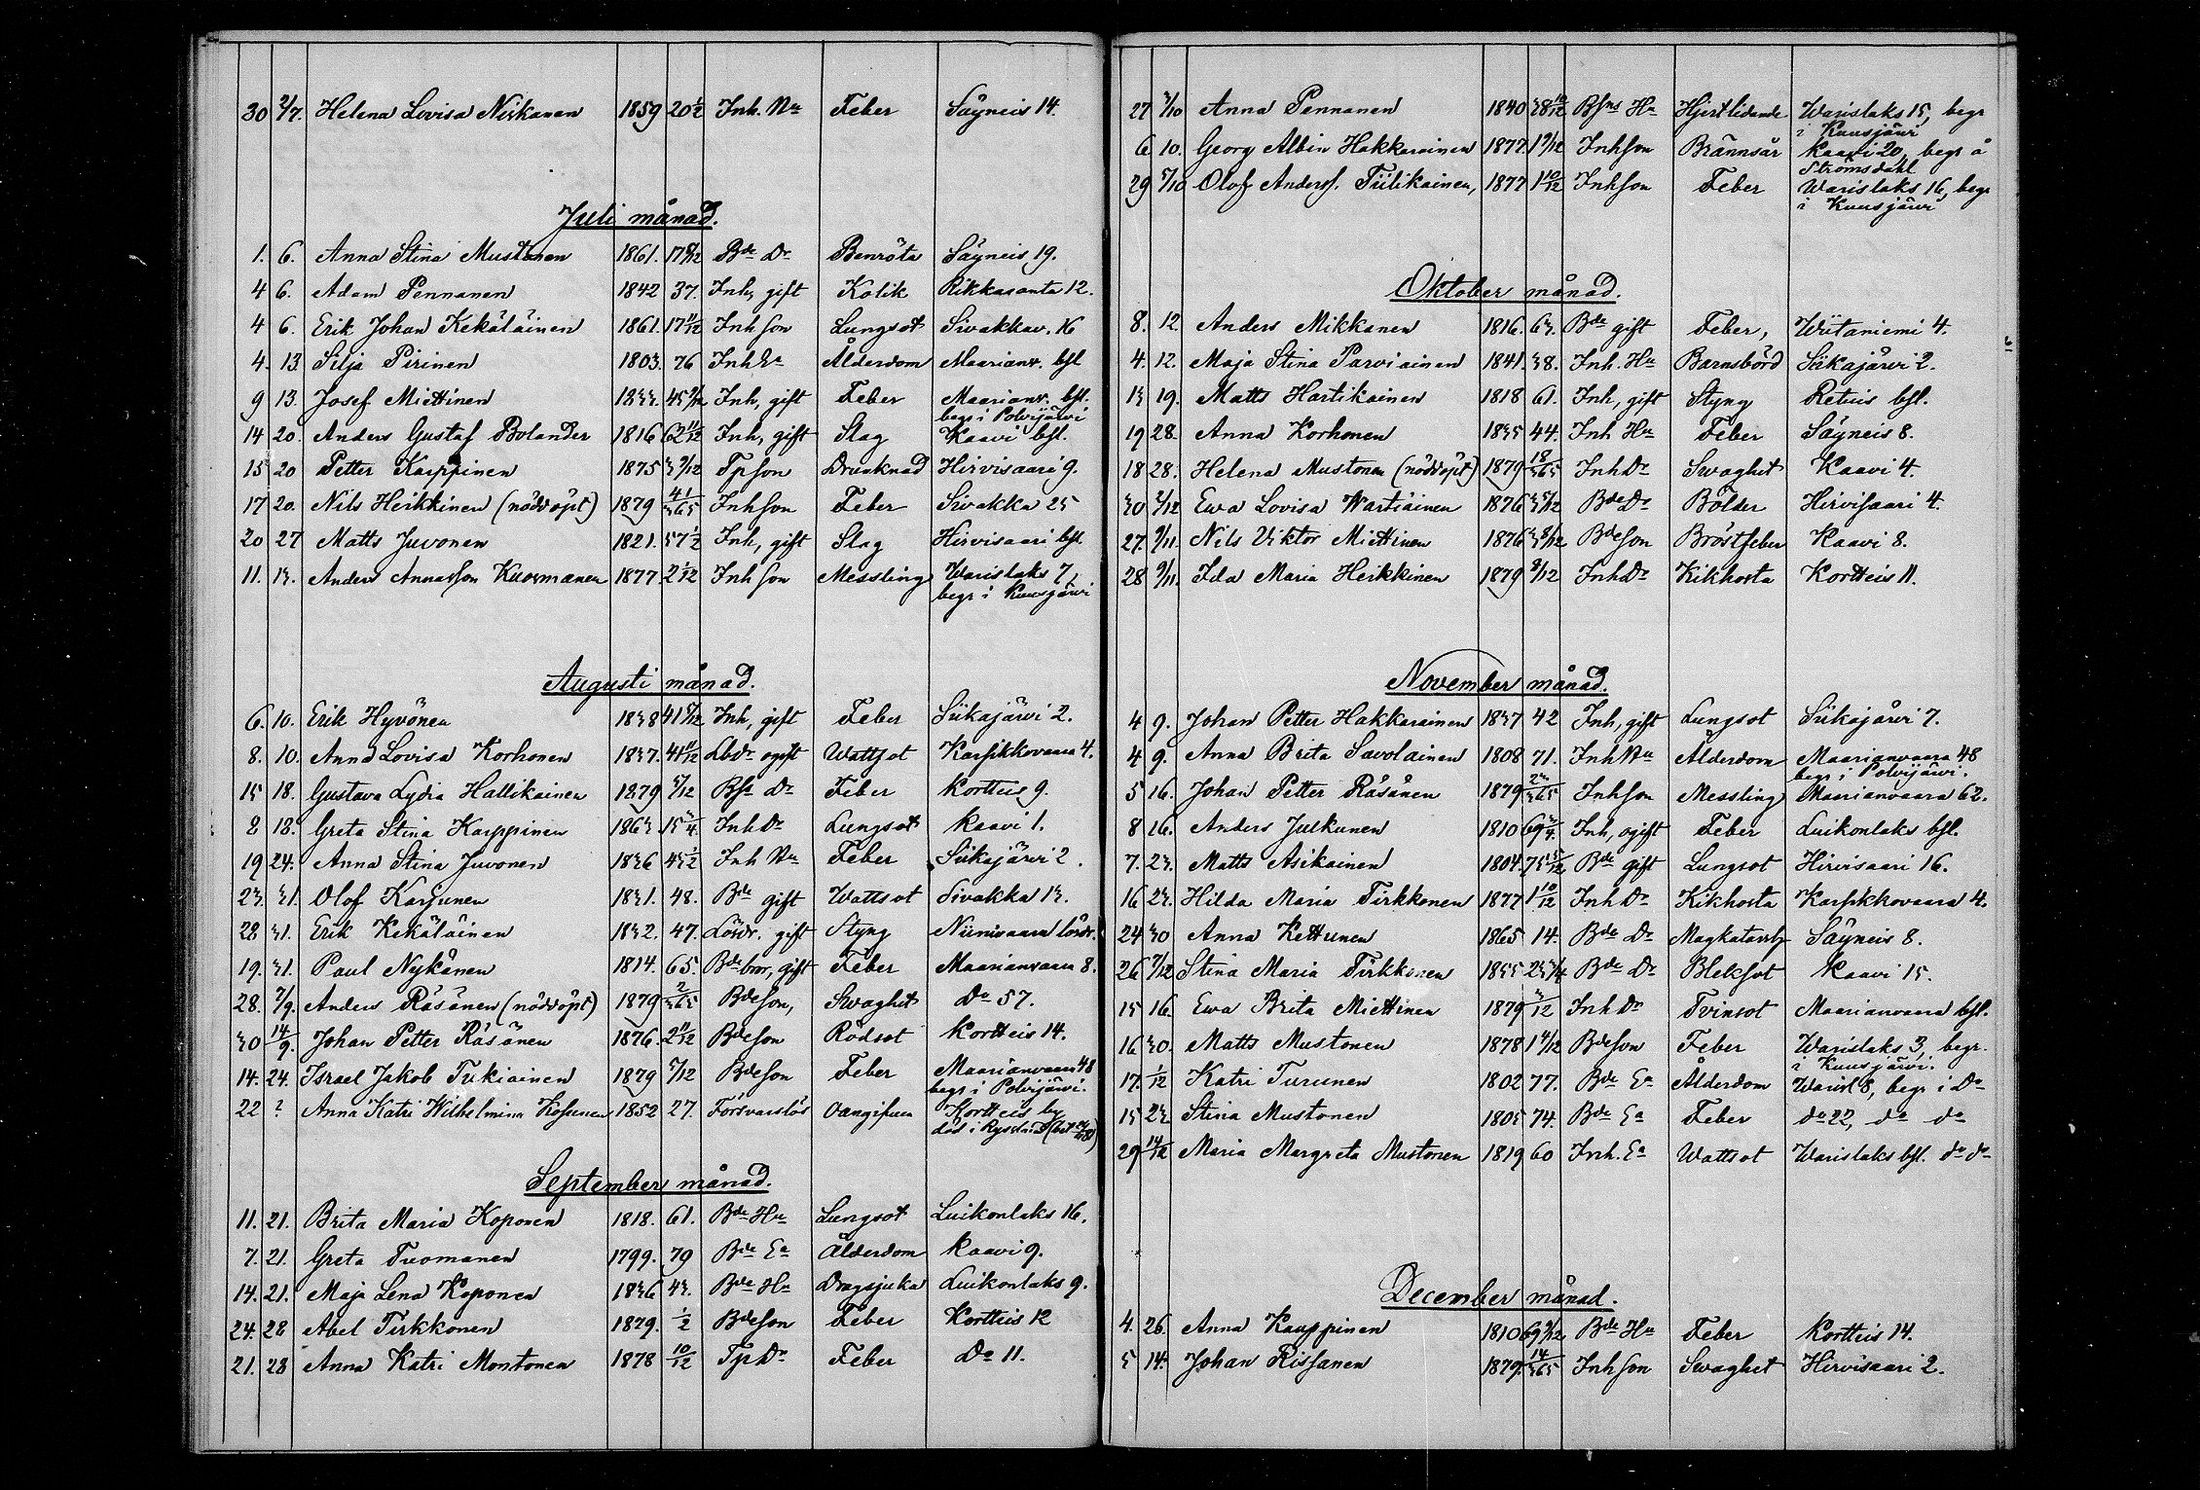 30 2/7. Helena Lovisa Niskanen 1859 20 1/2 Inh. Feber Säyneis 14.
Juli månad.
1. 6. Anna Stina Mustonen 1861. Bde Dr Benröta Säyneis 19.
4 6. Adam Pennanen 1842 37. Inh, gift Kolik Rikkaranta 12.
4 6. Erik Johan Kekäläinen 1861. 17 11/12 Inhson Lungsot Sivakkav. 16
4. 13 Silja Pirinen 1803. 76 Inh Ea Ålderdom Maarianv. bfl
9 13. Josef Miettinen 1833. Inh, gift Feber Maarianv. bfl.
begr i Polvijärvi
14 20. Anders Gustaf Bolander 1816 62 11/12 Inh, gift Slag Kaavi bfl.
15 20 Petter Karppinen 1875 Tpson Drunknad Hirvisaari 9.
17 20. Nils Heikkinen (nöddöpt) 1879 41/365 Inhson Feber Sivakka 25
20 27 Matts Juvonen 1821. 57 1/2 Inh, gift Slag Hirvisaari bfl.
11. 13. Anders Annasson Kuosmanen 1877. 2 1/12 Inhson Messling Warislaks 7,
begr i Kuusjärvi
Augusti månad.
6. 10. Erik Hyvönen 1838 Inh, gift Feber Siikajärvi 2.
8. 10. Anna Lovisa Korhonen 1837. 41 11/12 Lbdr ogift Wattsot Karsikkovaara 4.
15 18. Gustava Lydia Hallikainen 1879 Bfl Dr Feber Kortteis 9.
8 18. Greta Stina Karppinen 1863. 15 3/4. Inh Dr Lungsot Kaavi 1.
19 24. Anna Stina Juvonen 1836 43 1/2 Inh Feber Siikajärvi 2.
23. 31. Olof Karjunen 1831. 48. Bde gift Wattsot Sivakka 13.
28 31. Erik Kekäläinen 1832. 47. Lösdr. gift Styng Niinivaara lösdr.
19. 31. Paul Nykänen 1814. 65. Bde bror, gift Feber Maarianvaara 8.
28. 7/9. Anders Räsänen (nöddöpt) 1879 2/365 Bdeson, Swaghet Do 57.
30 14/9. Johan Petter Räsänen 1876. 2 11/12 Bdeson Rödsot Kortteis 14.
14. 24. Israel Jakob Tukiainen 1879 Bdeson Feber Maarianvaara 48
begr i Polvijärvi.
22 ? Anna Katri Wilhelmina Kosunen 1852 27. Försvarslös oangifven Kortteis by
död i Ryssland
September månad.
11. 21. Brita Maria Koponen 1818. 61. Bde Hu Lungsot Luikonlaks 16.
7. 21. Greta Tuomanen 1799. 79 Bde Ea Ålderdom Kaavi 9.
14. 21. Maja Lena Koponen 1836 43. Bde Hu Dragsjuka Luikonlaks 9.
24. 28 Abel Tirkkonen 1879. 1/2 Bdeson Feber Kortteis 12
21. 28 Anna Katri Montonen 1878 10/12 Tp Dr Feber Do 11.
27 3/10 Anna Pennanen 1840 38 10/12 Hu Hjertlidande Warislaks 15, begr
i Kuusjärvi
6 10. Georg Albin Hakkarainen 1877. Inhson Brännsår Kaavi 20, begr å
Strömsdahl
29 5/10 Olof Anderss. Tiilikainen, 1877 1 10/12 Inhson Feber Warislaks 16, begr
i Kuusjärvi
Oktober månad.
8. 12. Anders Mikkanen 1816. 63. Bde gift Feber, Wiitaniemi 4.
4. 12. Maja Stina Parviainen 1841. 38. Inh. Hu Barnsbörd Siikajärvi 2.
13 19. Matts Hartikainen 1818 61. Inh, gift Styng Retuis bfl.
19 28. Anna Korhonen 1835 44. Inh Hu Feber Säyneis 8.
18 28. Helena Mustonen (nöddöpt) 1879 18/365 Inh Dr Swaghet Kaavi 4.
30 2/12 Ewa Lovisa Wartiainen 1876 Bde Dr Bölder Hirvisaari 4.
27. 9/11. Nils Viktor Miettinen 1876 Bdeson Bröstfeber Kaavi 8.
28 9/11. Ida Maria Heikkinen 1879 Inh Dr Kikhosta Kortteis 11.
November månad.
4 9. Johan Petter Hakkarainen 1837 42 Inh, gift Lungsot Siikajärvi 7.
4 9. Anna Brita Savolainen 1808 71. Inh Ålderdom Maarianvaara 48
begr i Polvijärvi.
5 16. Johan Petter Räsänen 1879 23/365 Inhson Messling Maarianvaara 62.
8 16. Anders Julkunen 1810 69 3/4. Inh, ogift Feber Luikonlaks bfl.
7. 23. Matts Asikainen 1804. Bde gift Lungsot Hirvisaari 16.
16 23. Hilda Maria Tirkkonen 1877 1 10/12 Inh Dr Kikhosta Karsikkovaara 4.
24 30 Anna Kettunen 1865 14. Bde Dr Magkatarrh Säyneis 8.
26 7/12 Stina Maria Tirkkonen 1855 Bde Dr Bleksot Kaavi 15.
15 16. Ewa Brita Miettinen 1879 3/12 Inh Dr Tvinsot Maarianvaara bfl.
16 30. Matts Mustonen 1878 Bdeson Feber Warislaks 3, begr.
i Kuusjärvi.
17. 1/12 Katri Turunen 1802 77. Bde Ea Ålderdom Warisl 8, begr i Do
15 23 Stina Mustonen 1805 74. Bde Ea Feber do 22, do do
29 14/12 Maria Margreta Mustonen 1819 60 Inh. Ea Wattsot Warislaks bfl. do do
December månad.
4. 26. Anna Kauppinen 1810 Bde Hu Feber Kortteis 14.
5 14. Johan Kissanen 1879. 14/365 Inhson Swaghet Hirvisaari 2.